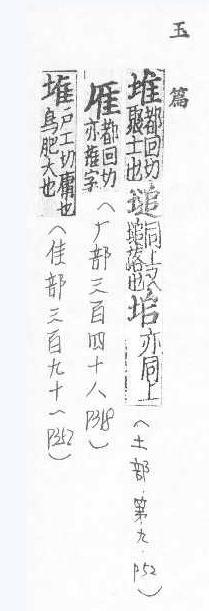 玉篇
堆都回切聚土也塠同上又塠落也𡊅亦同上(土部.第九.P52)
雁都回切亦堆字(厂部三百四十八P318)
堆戶工切庸也鳥肥大也(隹部三百九十一P352)